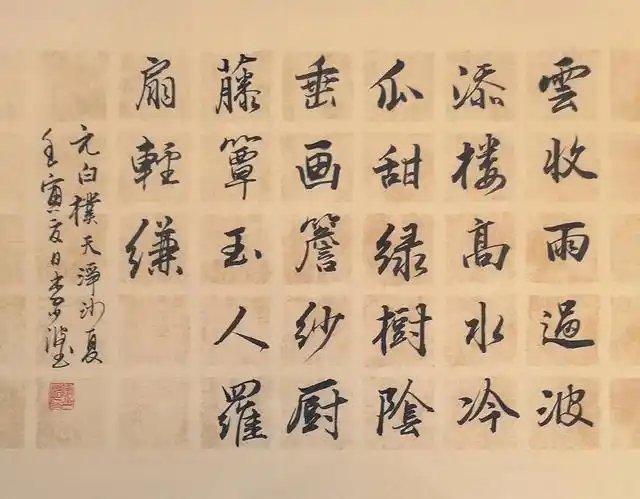 雲收雨過波
添楼高水冷
瓜甜緑樹陰
垂画簷紗厨
藤簟玉人羅
扇輕縑
元白樸天淨沙夏
壬寅夏日